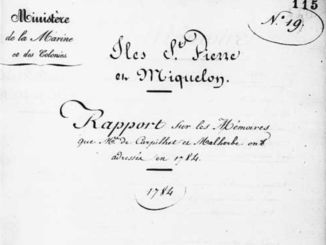 115
N.° 19
Ministère
de la Marine
et des Colonies
Iles St. Pierre
et Miquelon.
Rapport sur les Mémoires
que Mrs. de Carpilhet et Malherbe ont
adressés en 1784.
1784